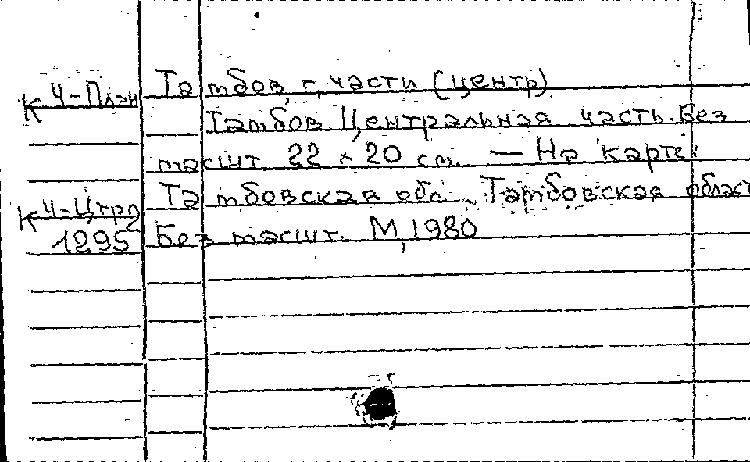 К4-План Тамбов, г, части (центр)
Тамбов Центральная часть. Без
масшт. 22 × 20 см. — На карте:
К4-Цтрл Тамбовская обл., Тамбовская област
1295 Без масшт. М, 1980